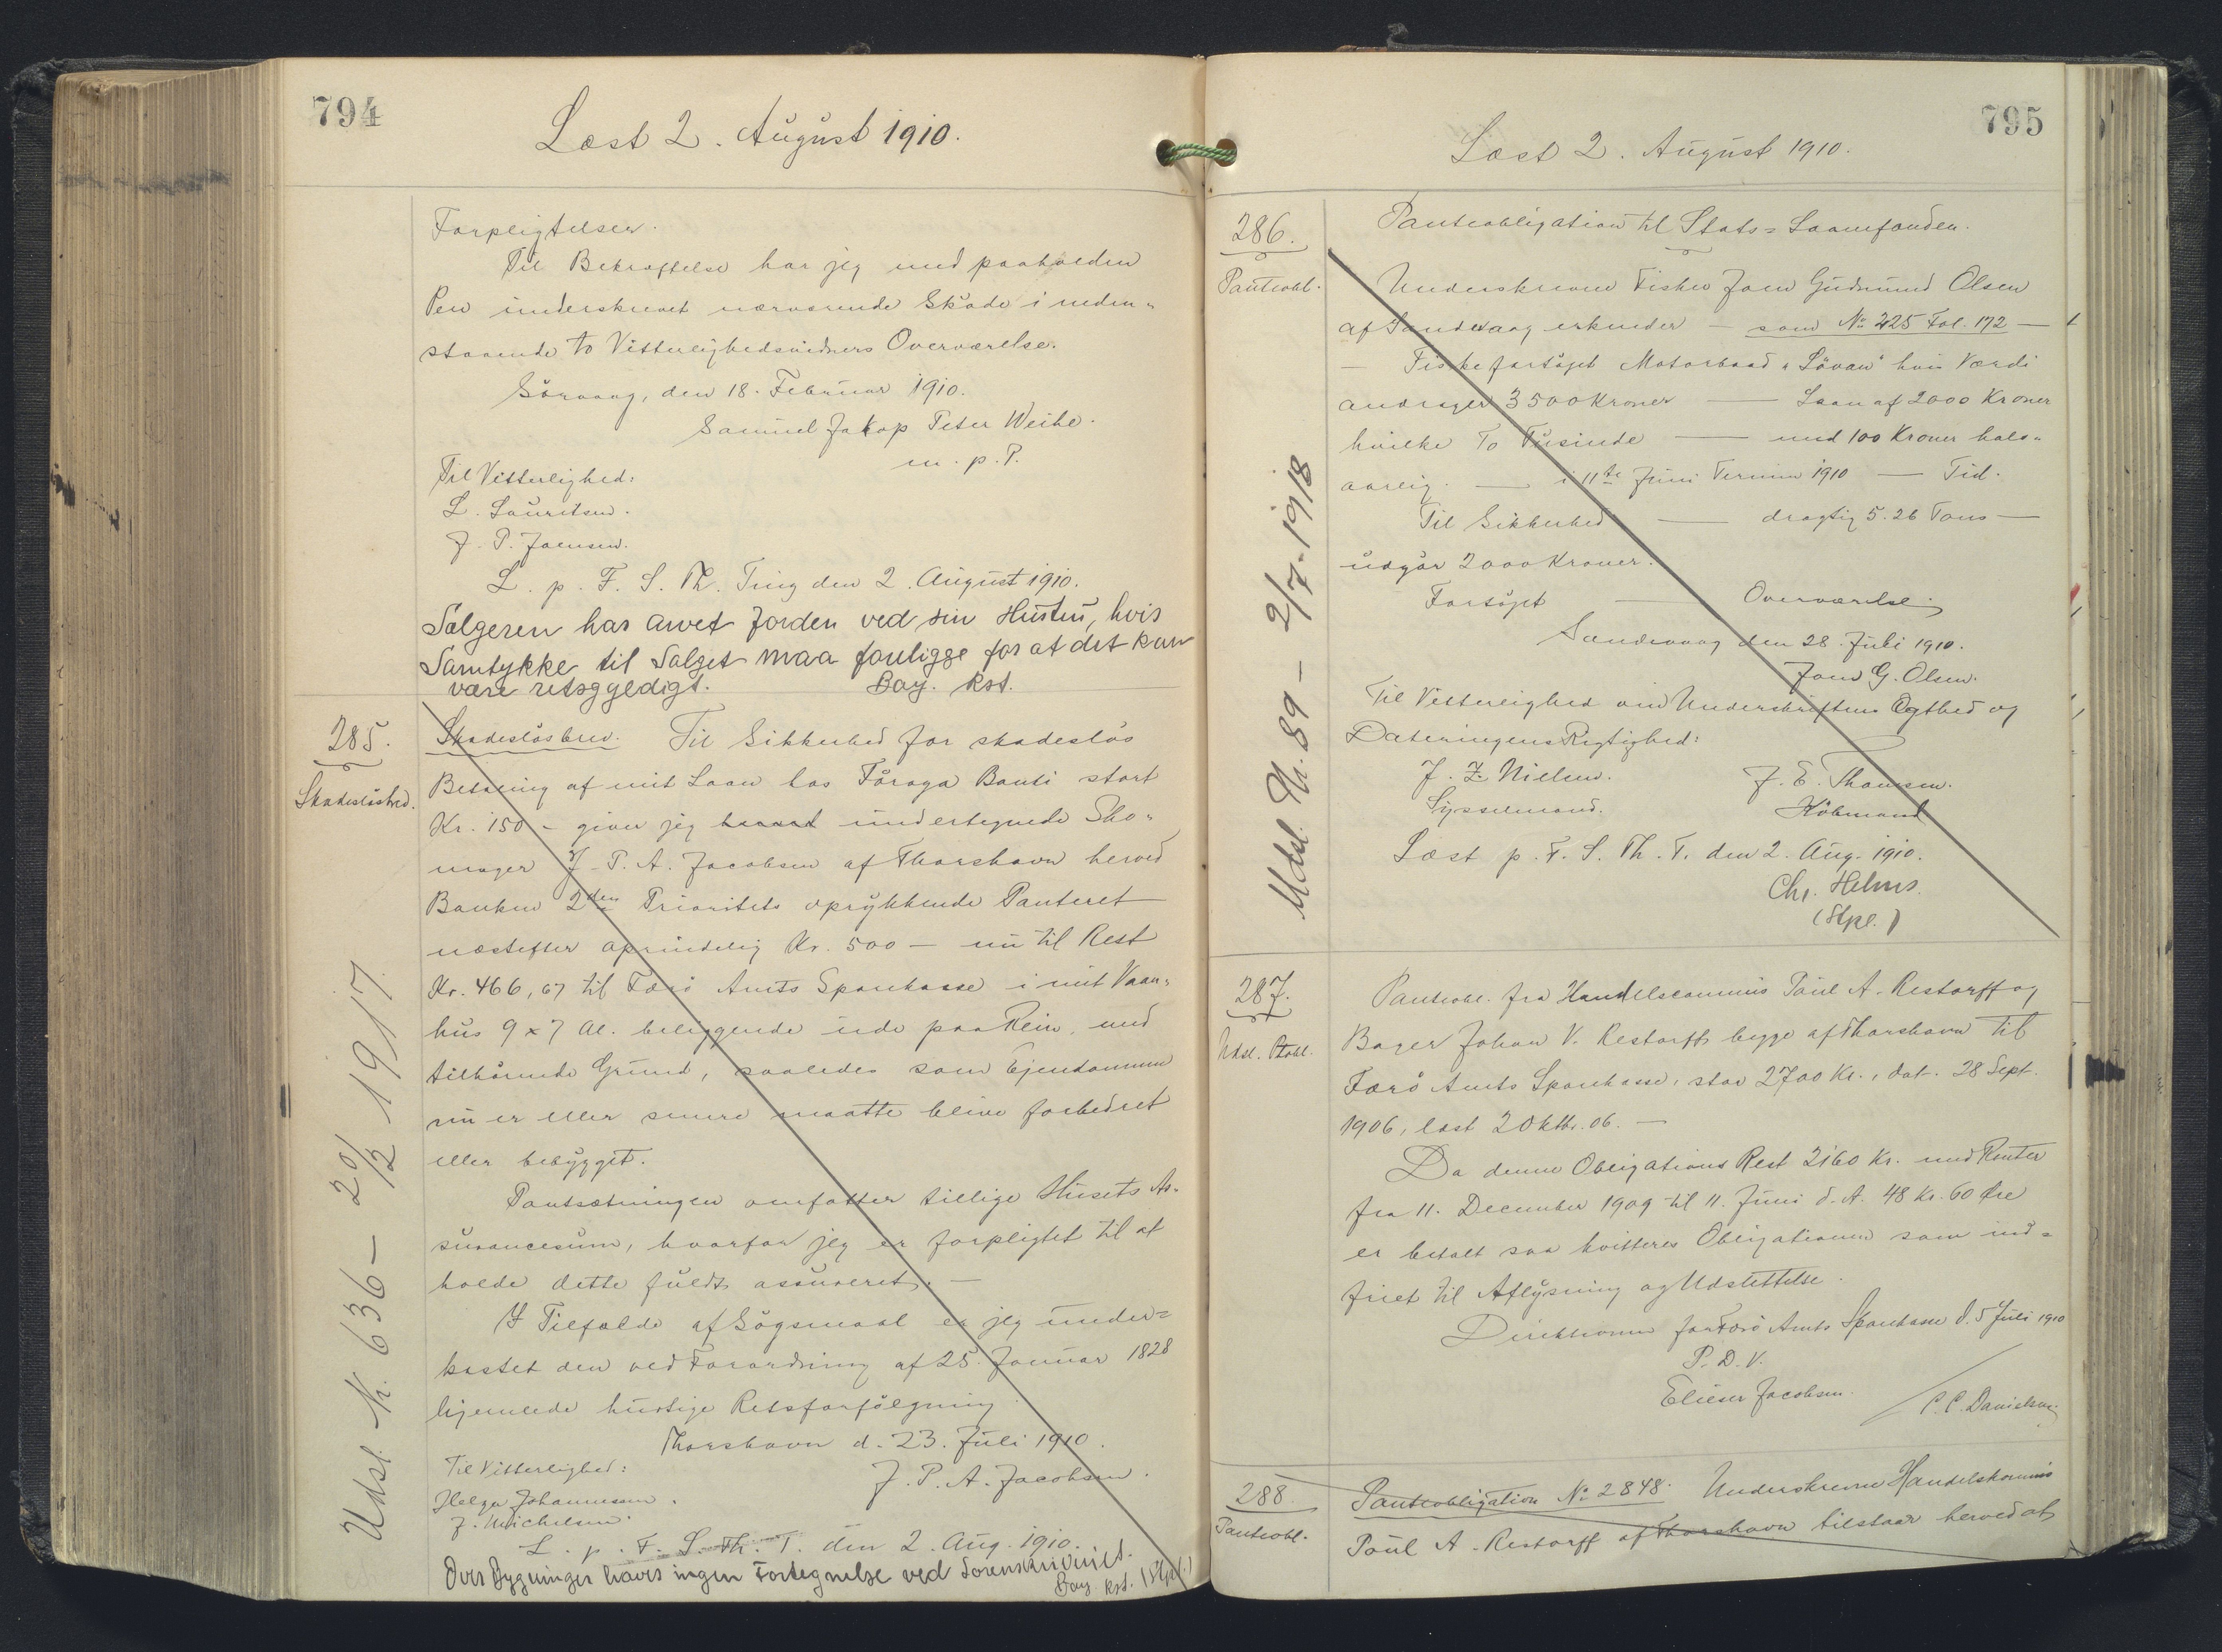 794
Læst 2. August 1910.
Forpligtelser.
Til Bekræftelse har jeg med paaholden
Pen underskrevet nærværende Skøde i neden-
staaende to Vitterlighedsvidners Overværelse.
Sörvaag, den 18. Februar 1910.
Samuel Jakop Peter Weihe.
m. p. P.
Til Vitterlighed:
L. Lauritsen.
J. P. Joensen.
L. p. F. S. Th. Ting den 2. August 1910.
Sælgeren har arvet Jorden ved sin Hustru, hvis
Samtykke til Salget maa foreligge for at det kan
være retsgyldigt. Bay. Kst.
285.
Skadeslösbrev.
Udsl. Nr. 636 – 20/2 1917
Skadeslösbrev. Til Sikkerhed for skadeslös
Betaling af mit Laan hos Föroya Banki stort
Kr. 150 – giver jeg undertegnede Sko-
mager J. P. A. Jacobsen af Thorshavn herved
Banken 2den Prioritets oprykkende Panteret
næstefter oprindelig Kr. 500 – nu til Rest
Kr. 466,67 til Færö Amts Sparekasse i mit Vaan-
hus 9 x 7 Al. beliggende inde paa Rein, med
tilhörende Grund, saaledes som Ejendommen
nu er eller senere maatte blive forbedret
eller bebygget.
Pantsætningen omfatter tillige Husets As-
surancesum, hvorfor jeg er forpligtet til at
holde dette fuldt assureret. –
I Tilfælde af Sögsmaal er jeg under-
kastet den ved Forordning af 25. Januar 1828
hjemlede hurtige Retsforfölgning
Thorshavn d. 23. Juli 1910.
Til Vitterlighed:
J. P. A. Jacobsen.
Helga Johannesen.
J. Michelsen.
L. p. F. S. Th. T. den 2. Aug. 1910.
Over Bygninger haves ingen Fortegnelse ved Sorenskriveriet.
Bay. Kst. (Stpl.)
795
Læst 2. August 1910.
286.
Panteobl.
Udsl. Nr. 89 – 2/7 - 1918
Panteobligation til Stats=Laanefonden.
Underskrevne Fisker Joen Gudmund Olsen
af Sandevaag erkender – som No 225 Fol. 172 –
– Fiskefartöjet Motorbaad "Lövan" hvis Værdi
andrager 3500 Kroner – Laan af 2000 Kroner
hvilke To Tusinde – med 100 Kroner halv-
aarlig. – i 11te Juni Termin 1910 – Tid.
Til Sikkerhed – drægtig 5.26 Tons –
udgör 2000 Kroner.
Fartöjet – Overværelse.
Sandevaag den 28. Juli 1910.
Joen G. Olsen.
Til Vitterlighed om Underskriftens Ægthed og
Dateringens Rigtighed:
J. Z. Nielsen. J. E. Thomsen.
Sysselmand. Köbmand
Læst p. F. S. Th. T. den 2. Aug. 1910.
Chr. Helms.
(Stpl.)
287.
Udsl. Ptobl.
Panteobl. fra Handelscommis Poul A. Restorff og
Bager Johan V. Restorff begge af Thorshavn til
Færö Amts Sparekasse, stor 2700 Kr., dat. 28 Sept.
1906, læst 2 Oktbr. 06. –
Da denne Obligations Rest 2160 Kr. med Renter
fra 11. December 1909 til 11. Juni d. A. 48 Kr. 60 Øre
er betalt saa kvitteres Obligationen som ind-
friet til Aflysning og Udslettelse.
Direktionen for Færö Amts Sparekasse d. 5 Juli 1910
P. D. V.
Elieser Jacobsen. / C. C. Danielsen.
288.
Panteobl.
Panteobligation No 2848. Underskrevne Handelskommis
Poul A. Restorff af Thorshavn tilstaar herved at